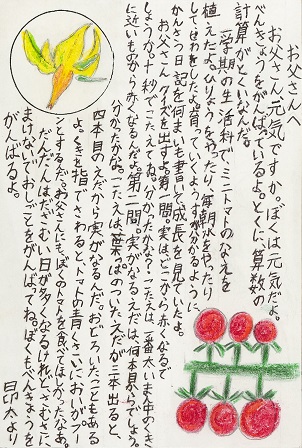 お父さんへ
お父さん元気ですか。ぼくは元気だよ。
べんきょうをがんばっているよ。とくに、算数の
計算がとくいなんだ。
一学期の生活科でミニトマトのなえを
植えたよ。ひりょうをやったり、毎朝水をやたり
してせわをしたよ。育っていくようすが分かるように
かんさつ日記を何まいも書いて成長を見ていたよ。
お父さん、クイズを出すよ。第一問。実はどこから赤くなるで
しょうか。十秒でこたえてね。分かったかな?こたえは一番太いまん中のくき
に近いものから赤くなるんだよ。第二問。実がなるえだは、何本目からでしょ。
分かったかな。こたえは、葉っぱのついたえだが三本出ると、
四本目のえだから実がなるんだ。おどろいたこともある
よ。くきを指でさわると、トマトの青くさいにおいがプー
ンとするんだ。お父さんにもぼくのトマトを食べてほしかったなあ。
だんだんはださむい日が多くなるけれど、さむさに
まけないでおしごとをがんばってね。ぼくもべんきょうを
がんばるよ。
昂太より